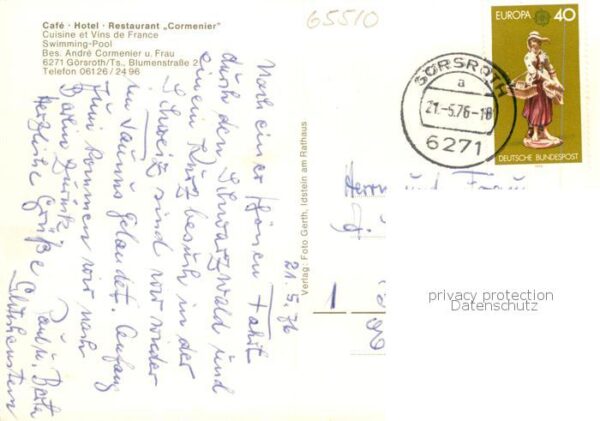 65510
Café · Hotel · Restaurant „Cormenier"
Cuisine et Vins de France
Swimming-Pool
Bes. André Cormenier u. Frau
6271 Görsroth/Ts., Blumenstraße 2
Telefon 06126/24 96
21.5.76
Nach einer schönen Fahrt
durch den Schwarzwald und
einem Kurzbesuch in der
Schweiz sind wir wieder
im Taunus gelandet. Anfang
Juni kommen wir nach
Berlin zurück.
Herzliche Grüße
Paul u. Berta
Verlag: Foto Gerth, Idstein am Rathaus
EUROPA 40
DEUTSCHE BUNDESPOST
GÖRSROTH
a
21.-5.76-18
6271
Herrn und Frau
1
privacy protection
Datenschutz